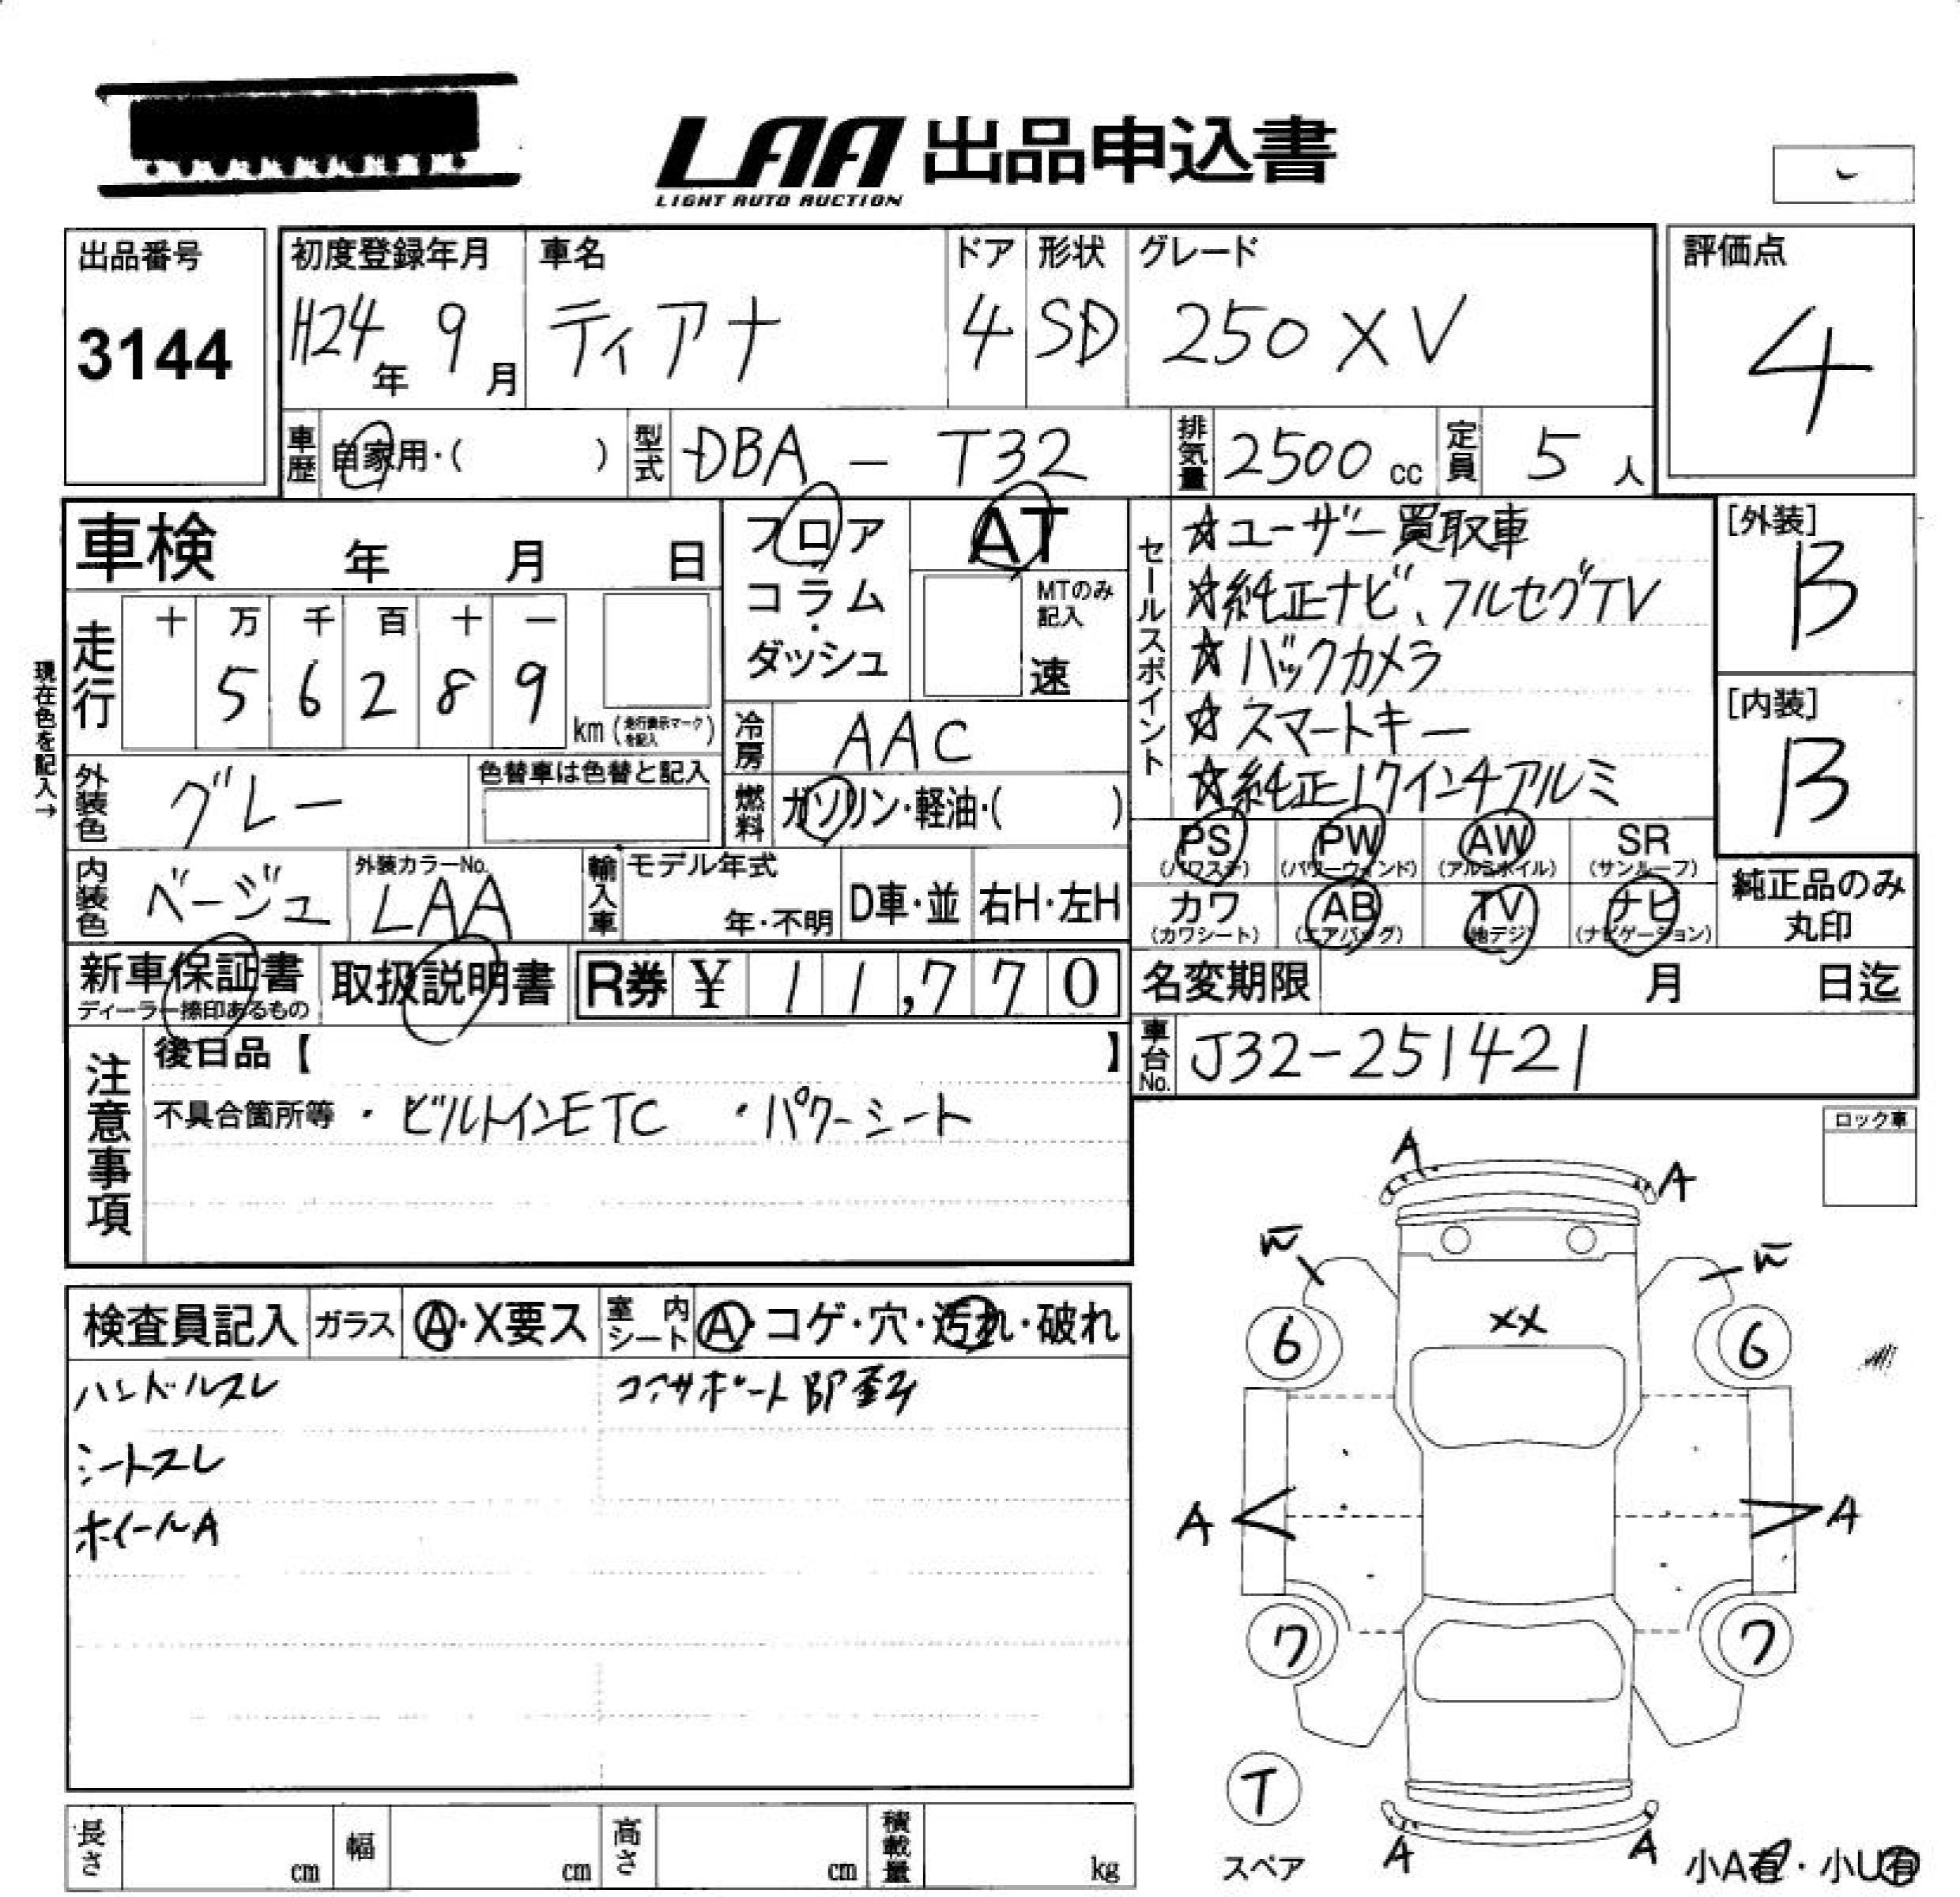 LAA 出品申込書
LIGHT AUTO AUCTION
出品番号
3144
初度登録年月
H24年 9月
車名
ティアナ
ドア
4
形状
SD
グレード
250XV
評価点
4
車歴 自家用・( )
型式 DBA - T32
排気量 2500 cc
定員 5 人
車検 年 月 日
現在色を記入→
走行
十 万 千 百 十 一
5 6 2 8 9
km (走行表示マークを記入)
フロア
コラム
・
ダッシュ
AT
MTのみ記入
速
冷房 AAC
燃料 ガソリン・軽油・( )
外装色 グレー
色替車は色替と記入
内装色 ベージュ
外装カラーNo.
LAA
輸入車
モデル年式
年・不明
D車・並
右H・左H
セールスポイント
☆ユーザー買取車
☆純正ナビ、フルセグTV
☆バックカメラ
☆スマートキー
☆純正17インチアルミ
[外装]
B
[内装]
B
PS (パワステ)
PW (パワーウィンド)
AW (アルミホイル)
SR (サンルーフ)
カワ (カワシート)
AB (エアバッグ)
TV (地デジ)
ナビ (ナビゲーション)
純正品のみ
丸印
新車保証書
ディーラー捺印あるもの
取扱説明書
R券 ¥ 11,770
名変期限 月 日迄
車台No. J32-251421
注意事項
後日品【 】
不具合箇所等 ・ビルトインETC ・パワーシート
ロック車
検査員記入
ガラス A・X要ス
室内シート A・コゲ・穴・汚れ・破れ
ハンドルスレ
コアサポート
シートスレ
ホイールA
A
A
XX
6
6
A
A
7
7
T
スペア
A
A
小A有・小U有
長さ cm
幅 cm
高さ cm
積載量 kg